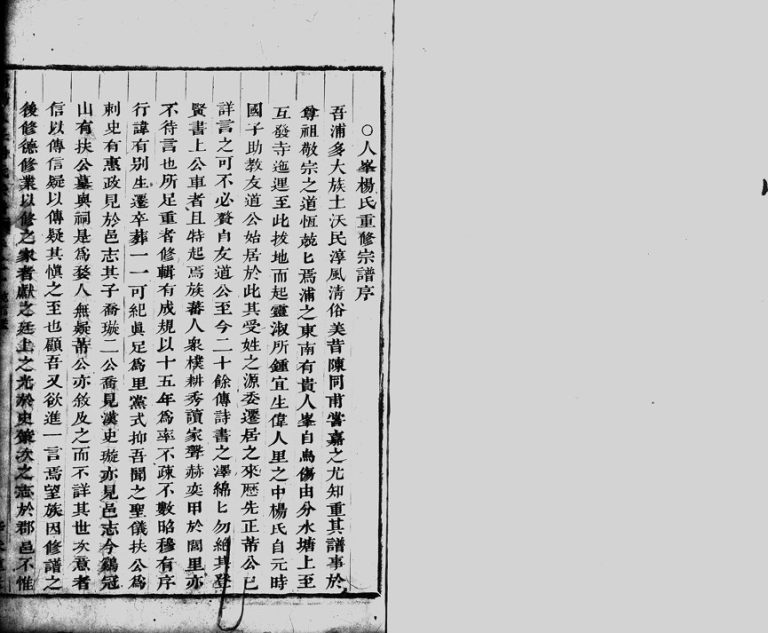 ○人峯楊氏重修宗譜序
吾浦多大族土沃民淳風清俗美昔陳同甫嘗嘉之尤知重其譜事於
尊祖敬宗之道恆兢匕焉浦之東南有貴人峯自烏傷由分水塘上至
互發寺迤邐至此拔地而起靈淑所鍾宜生偉人里之中楊氏自元時
國子助教友道公始居於此其受姓之源委遷居之來歷先正芾公已
詳言之可不必贅自友道公至今二十餘傳詩書之澤綿匕勿絕其登
賢書上公車者且特起焉族蕃人衆樸耕秀讀家聲赫奕甲於閭里亦
不待言也所足重者修輯有成規以十五年為率不疎不數昭穆有序
行諱有别生遷卒葬一一可紀眞足為里黨式抑吾聞之聖儀扶公為
刺史有惠政見於邑志其子喬璇二公喬見漢史璇亦見邑志今鷄冠
山有扶公墓與祠是為婺人無疑芾公亦敘及之而不詳其世次意者
信以傳信疑以傳疑其慎之至也顧吾又欲進一言焉望族因修譜之
後修德修業以修之家者獻之廷上之光於史策次之志於郡邑不惟